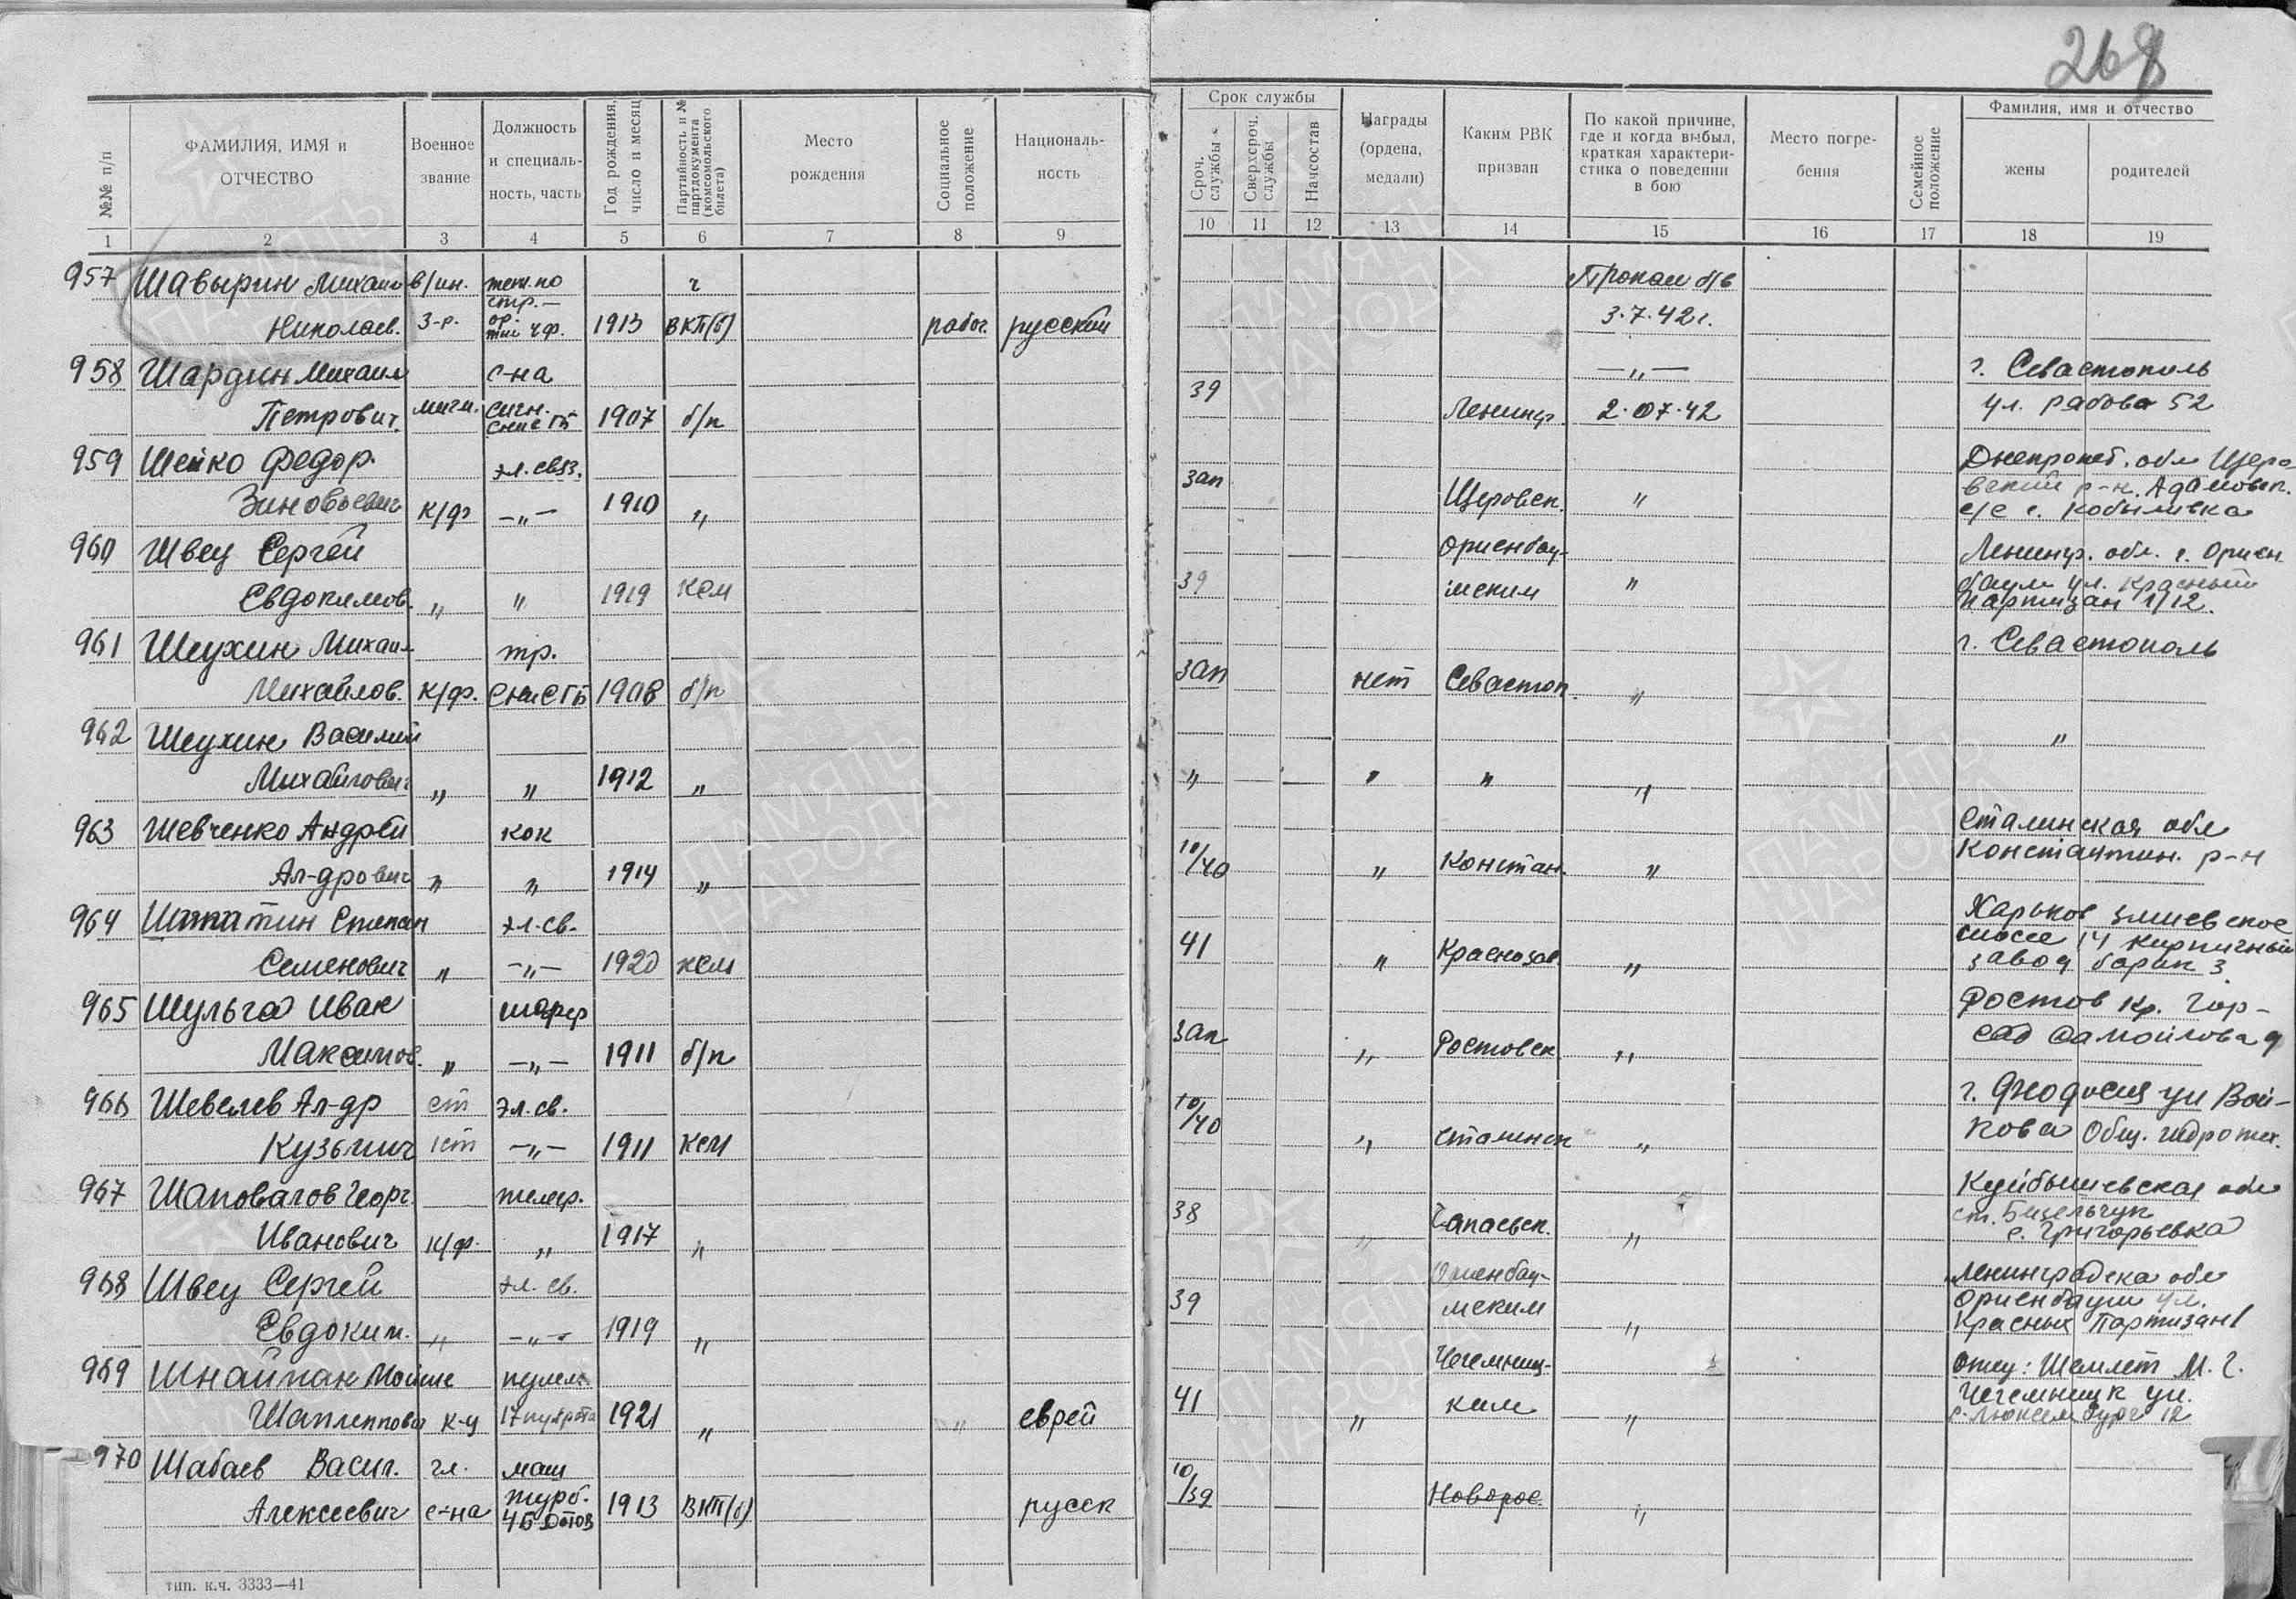 268
№№ п/п
ФАМИЛИЯ, ИМЯ и ОТЧЕСТВО
Военное звание
Должность и специальность, часть
Год рождения, число и месяц
Партийность и № партдокумента (комсомольского билета)
Место рождения
Социальное положение
Националь-ность
Срок службы
Сроч. службы
Сверхсроч. службы
Начсостав
Награды (ордена, медали)
Каким РВК призван
По какой причине, где и когда выбыл, краткая характери-стика о поведении в бою
Место погре-бения
Семейное положение
Фамилия, имя и отчество
жены
родителей
1 2 3 4 5 6 7 8 9 10 11 12 13 14 15 16 17 18 19
957 Шавырин Михаил в/ин. тех. по ч Пропал б/в
стр.–
Николаев. 3-р. ор. 1913 ВКП(б) рабоч. русский 3.7.42 г.
тыл ЧФ.
958 Шардин Михаил с-на –„– г. Севастополь
Петрович. мичм. сигн. 1907 б/п 39 Ленингр. 2.07.42 ул. 52
СНиС ГБ
959 Шейко Федор. эл. связ. Днепропет. обл Щеро-
Зиновьевич к/ф –„– 1910 „ Зап Щеровск. „ вский р-н. Адамовск.
с/с с. Кобыливка
960 Швец Сергей Ориенбау- Ленингр. обл. г. Ориен
Евдокимов. „ „ 1919 КСМ 39 мским „ баум ул. Красный
Партизан 1/12.
961 Шеухин Михаил тр. г. Севастополь
Михайлов. к/ф. СНиС ГБ 1908 б/п Зап нет Севастоп. „
962 Шеухин Василий „
Михайлович „ „ 1912 „ „ „ „ „
963 Шевченко Андрей кок Сталинская обл
Ал-дрович „ „ 1914 „ 10/40 „ Констан. „ Константин. р-н
964 Степан эл. св. Харьков Змиевское
Семенович „ –„– 1920 КСМ 41 „ Краснозав. „ шоссе 14 кирпичный
завод барак 3
965 Шульга Иван шофер Ростов Кр. Гор-
Максимов. „ –„– 1911 б/п Зап „ Ростовск „ сад Самойлова 9
966 Шевелев Ал-др ст эл. св. г. Феодосия ул Вой-
Кузьмич 1ст –„– 1911 КСМ 10/40 „ Сталинск „ кова Общ. гидротех.
967 Шаповалов Георг. телегр. Куйбышевская обл
Иванович к/ф. „ 1917 „ 38 „ Чапаевск. „ ст. Безельчук
с. Григорьевка
968 Швец Сергей эл. св. Ориенбау- Ленинградска обл
Евдоким. „ –„– 1919 „ 39 мским „ Ориенбаум ул.
Красных Партизан 1
969 Шнайман Моише пулем. Чечельниц- Отец: Шемлет М. Г.
к-ц 1921 „ „ еврей 41 „ ким „ Чечельницк ул.
Люксембург 12
970 Шабаев Васил. гл. маш
Алексеевич с-на турб. 1913 ВКП(б) русск 10/39 Новорос. „
тип. к.ч. 3333—41
ПАМЯТЬ НАРОДА